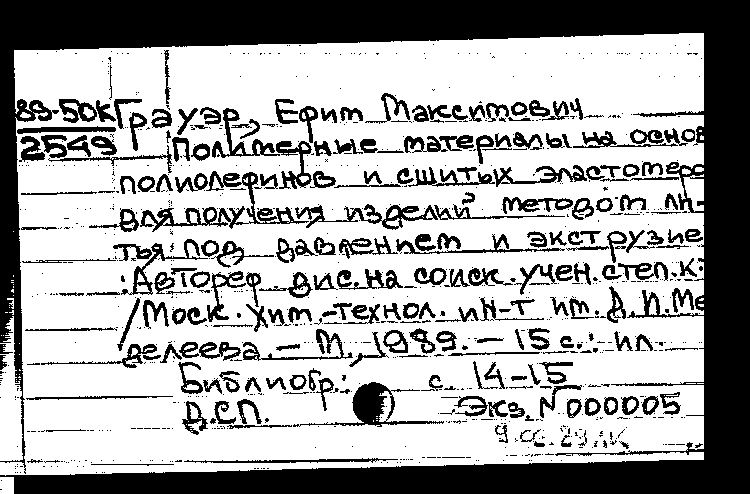 89-50К Грауэр, Ефим Максимович
2549 Полимерные материалы на основ
полиолефинов и сшитых эластомеро
для получения изделий методом ли-
тья под давлением и экструзие
: Автореф дис. на соиск. учен. степ. к.
/ Моск. хим.-технол. ин-т им. Д. И. Ме
делеева. – М., 1989. – 15 с.: ил.
Библиогр.: с. 14-15
Д.СП. Экз. № 000005